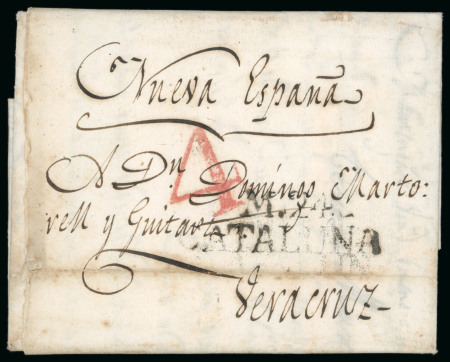 Nueva España
4
A Dn. Domingo Marto:
rell y Guitart
CATALUÑA
Veracruz